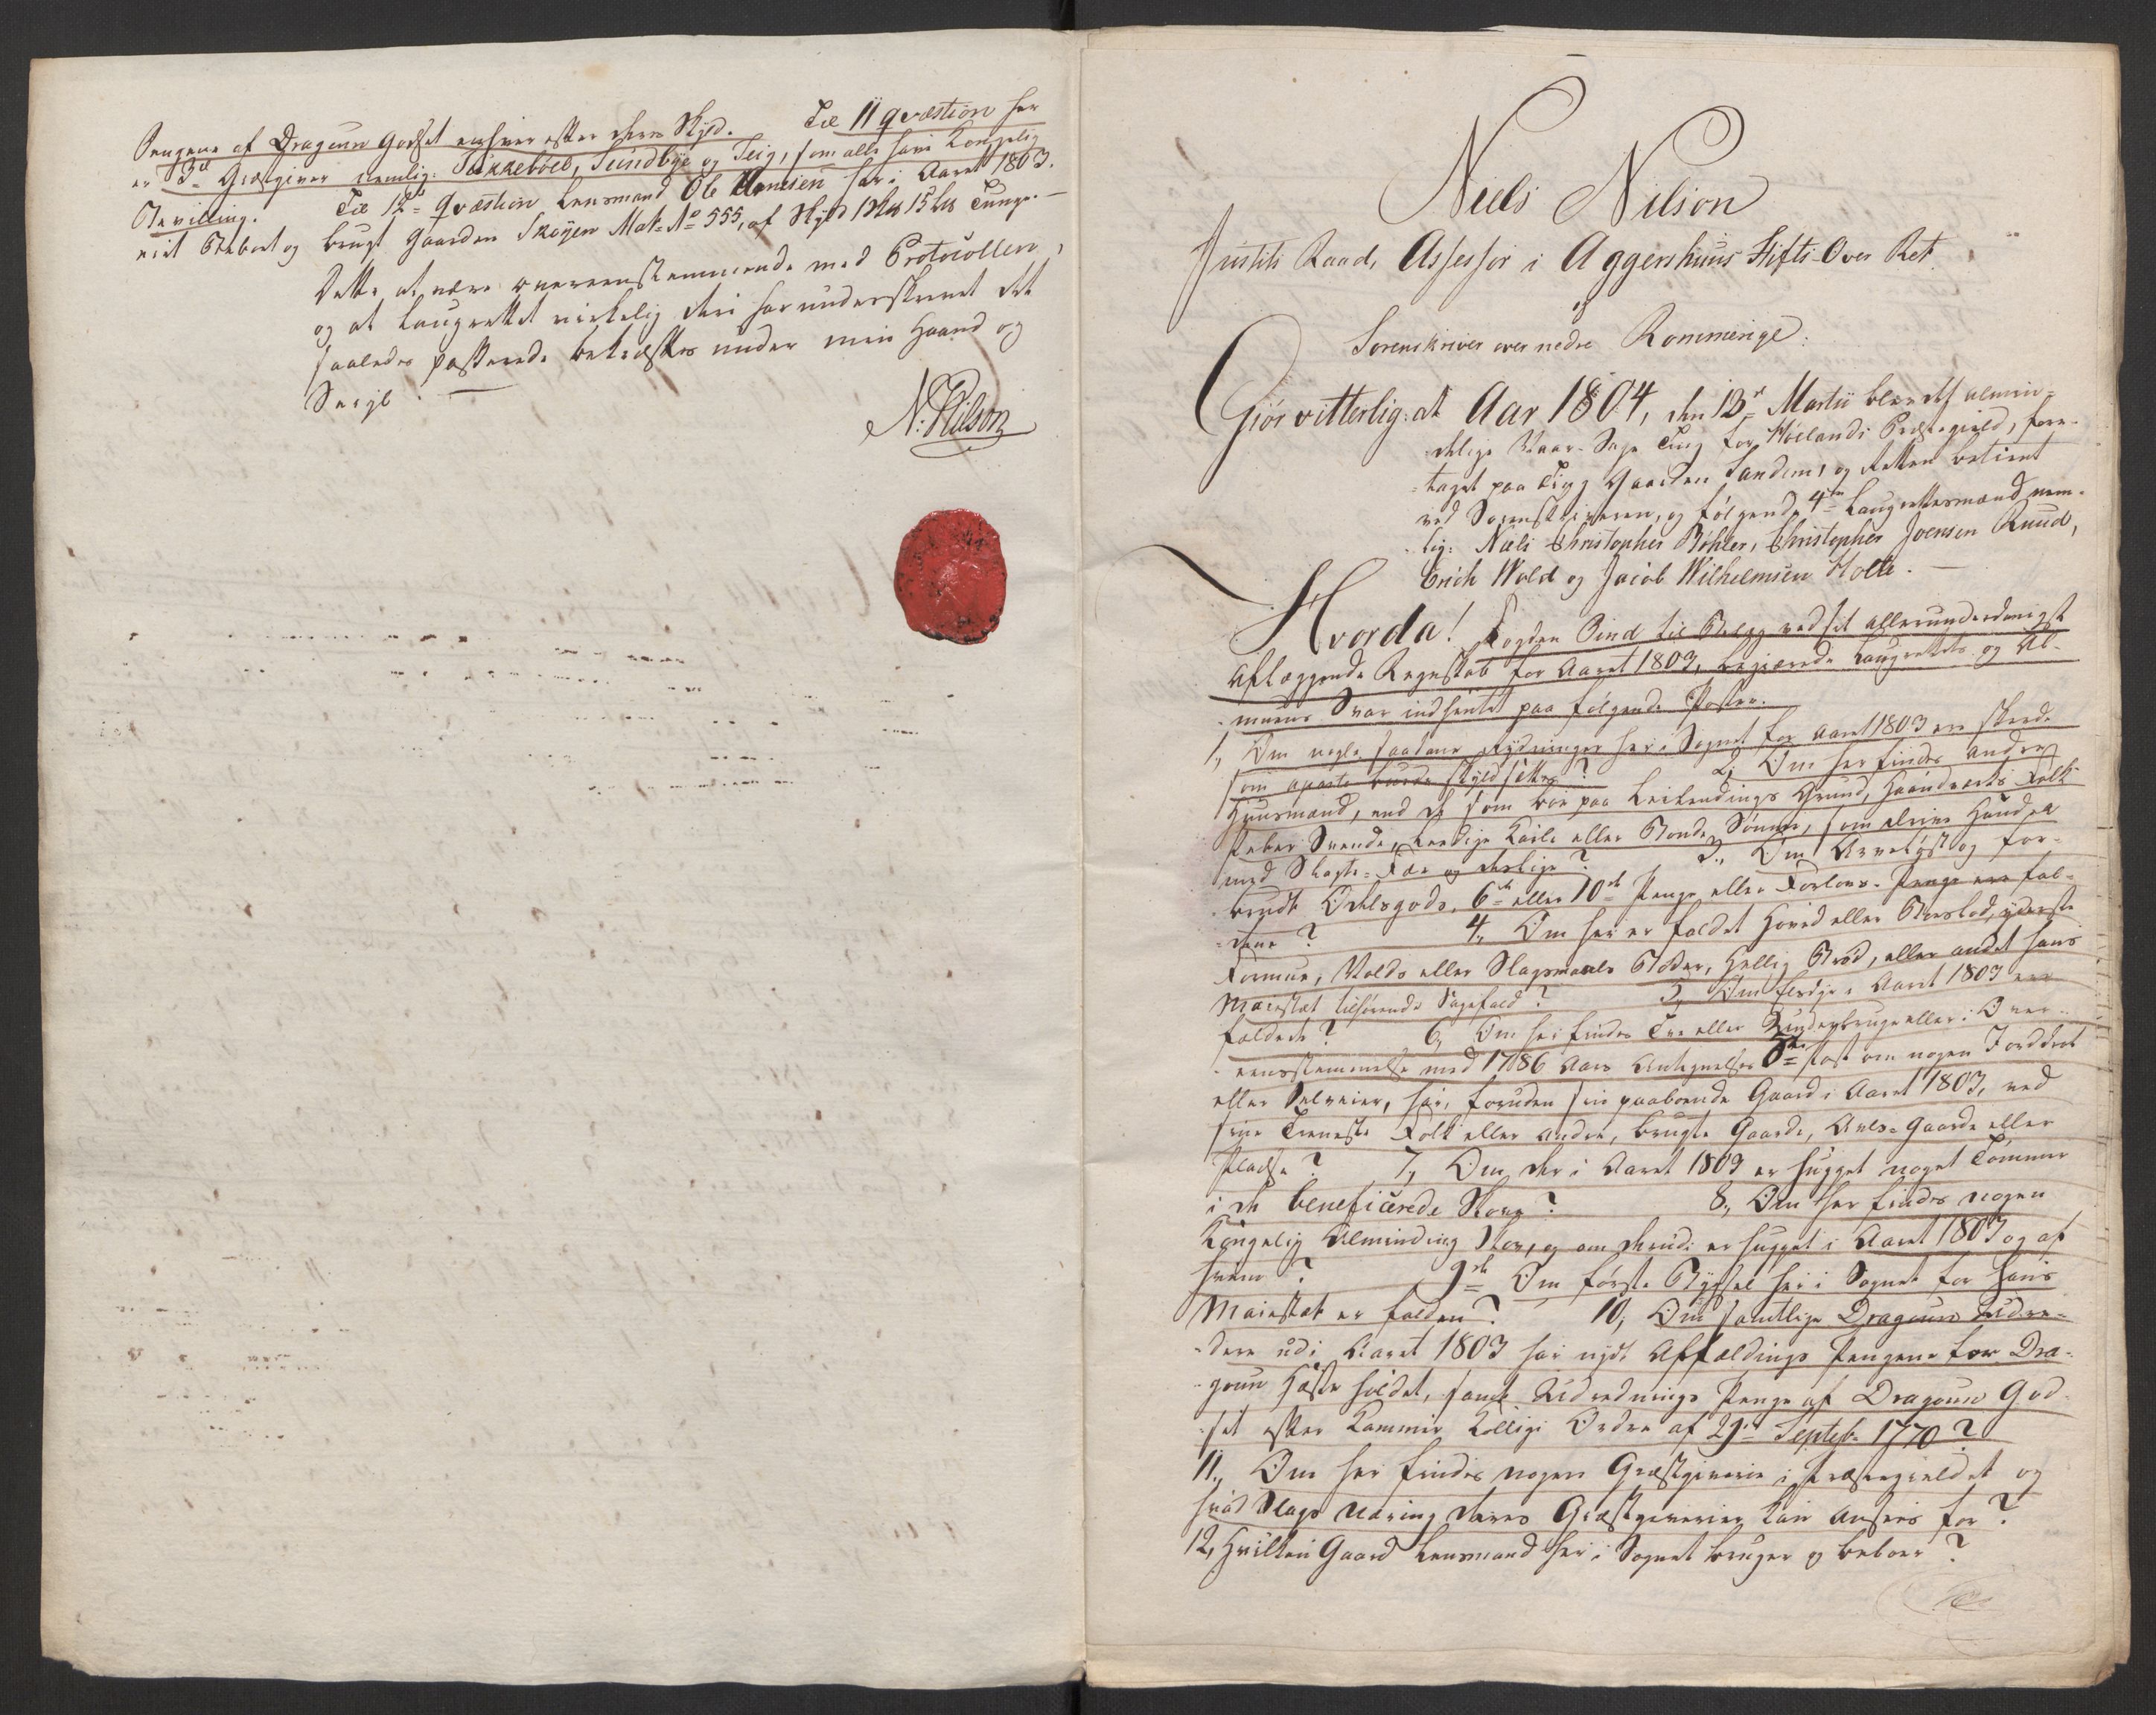 Pengene af Dragoun Godset enhver efter deres Skyld. Til 11 qvæstion her
er 3de Giestgiver nemlig: Bakkeboel, Sundbye og Teig, som alle have Kongelig
Bevilling. Til 12te qvæstion Lensmand Ole Hansen har i Aaret 1803.
vist beboet og brugt Gaarden Skøyen Mat: No 555, af Skyld 1 15 Tunge.
Dette at være overeensstemmende med Protocollen,
og at Laugrettet virkelig deri har underskrevet det
saaledes passerede bekræftes under min Haand og
Seigl.
N: Nilson
Niels Nilson
Justits Raad, Assessor i Aggershuus Stifts-Over Ret
og
Sorenskriver over nedre Rommerige:
Giør vitterlig: at Aar 1804, den 13de Martii blev det almin-
delige Vaar-Sage Ting for Hølands Præstegield, fore-
taget paa Ting Gaarden Sandem, og Retten betient
ved Sorenskriveren, og følgende 4re Laugrettesmænd nem-
lig: Niels Christopher Bøhler, Christopher Joensen Ruud,
Erich Wold og Jacob Wilhelmsen Holte.
Hvorda! Fogden Bind til Belæg ved sit allerunderdanigst
aflæggende Regnskab for Aaret 1803, begiærede Laugrettets og Al-
muens Svar indhentet paa følgende Poster.
1, Om nogle saadane Rydninger her i Sognet for Aaret 1803 ere skeede
som aparte burde skyldsættes? 2, Om her findes andre
Huusmænd, end de som boe paa Leilendings Grund, Haandverks Folk
Peber Svende, Ledige Karle eller Bonde Sønner, som drive Handel
med Slagte-Fæe og deslige? 3, Om Arveløst og for-
brudt Odelsgods, 6te eller 10de Penge eller Forlovs-Penge ere fal-
dene? 4, Om her er faldet Hoved eller Boeslod, yderste
Formue, Volds eller Slagsmaals Bøder, Hellig Brød, eller andet hans
Maiestæt tilhørende Sagefald? 5, Om Ledige i Aaret 1803 ere
faldede? 6, Om her findes Tve eller Underbruge eller: Over-
eensstemmelse med 1786 Aars Antegnelses 5te Post om nogen Jorddrot
eller Selveier, har, foruden sin paaboende Gaard i Aaret 1803, ved
sine Tieneste Folk eller andre, brugte Gaarde, Avls-Gaarde eller
Pladse? 7, Om der i Aaret 1803 er hugget noget Tømmer
i de beneficerede Skove? 8, Om her findes nogen
Kongelig Alminding Skov, og om derudi er hugget i Aaret 1803 og af
hvem? 9de Om første Bygsel her i Sognet for Hans
Maiestæt er falden? 10, Om samtlige Dragoun Udre-
dere udi Aaret 1803 har nydt Affældings Pengene for Dra-
goun Hæste holdet, samt Udrednings Penge af Dragoun God-
set efter Kammer Collegii Ordre af 29de Septebr 1770?
11, Om her findes nogen Giæstgiverie i Præstegieldet og
hvad Slags Næring deres Giæstgiverier kan ansees for?
12, Hvilken Gaard Lensmand her i Sognet bruger og beboer?